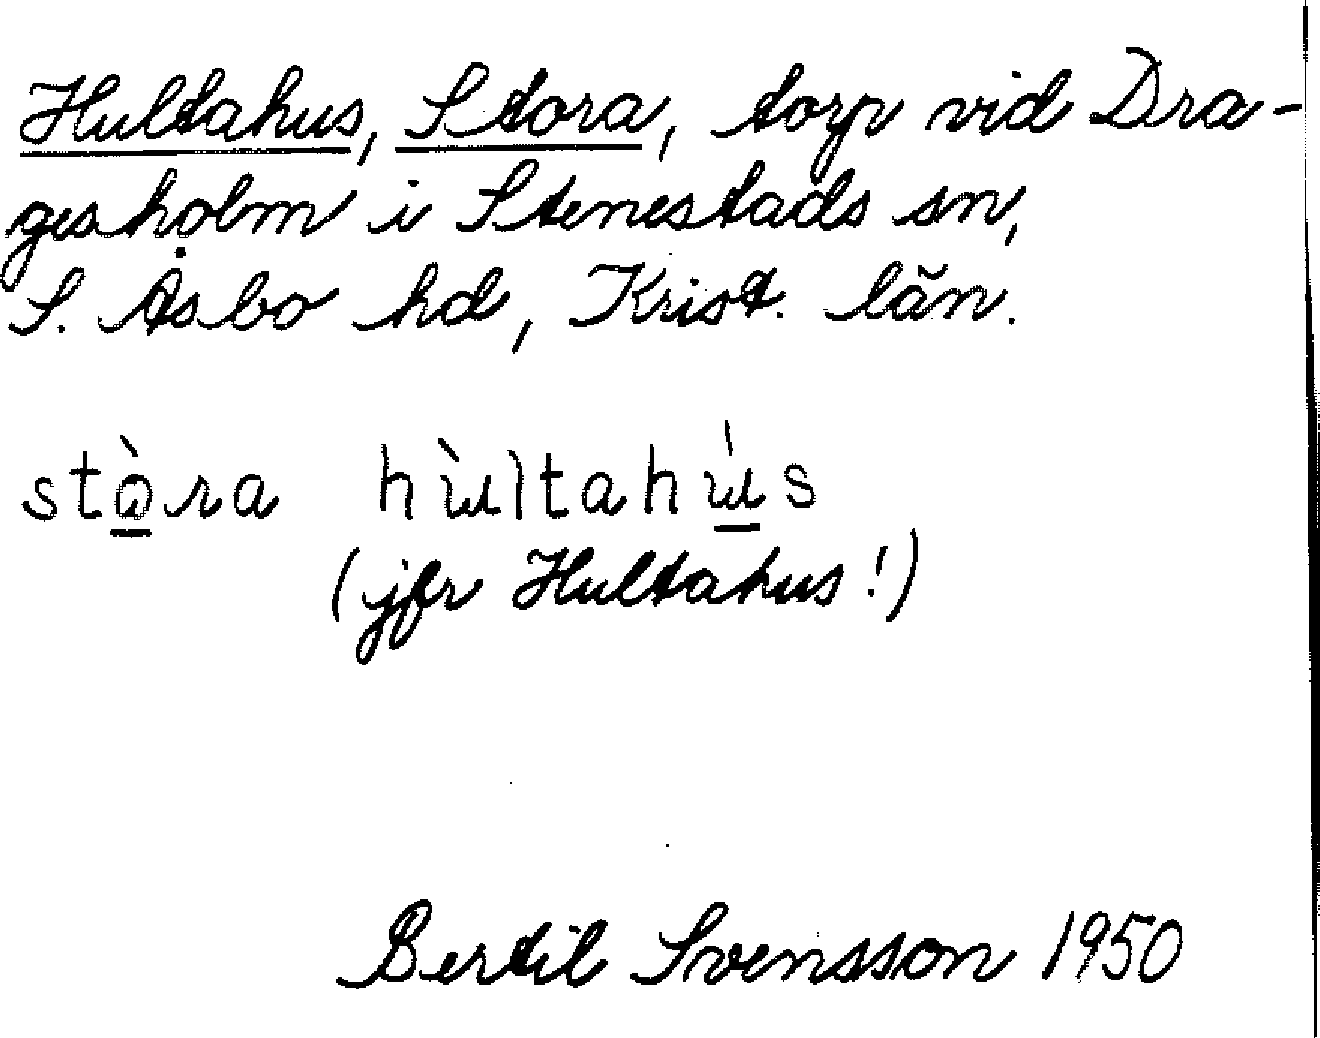 Hultahus, Stora, torp vid Dra-
gesholm i Stenestads sn,
S. Åsbo hd, Krist. län.
stòra hùltahús
(jfr Hultahus!)
Bertil Svensson 1950